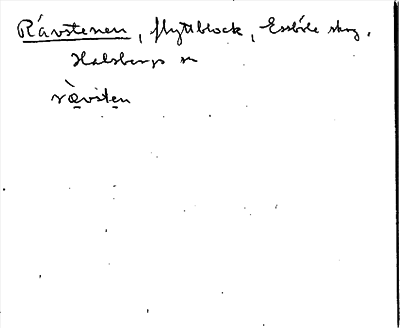 Rävstenen, flyttblock, Essböle skog.
Halsbergs sn
rævsten